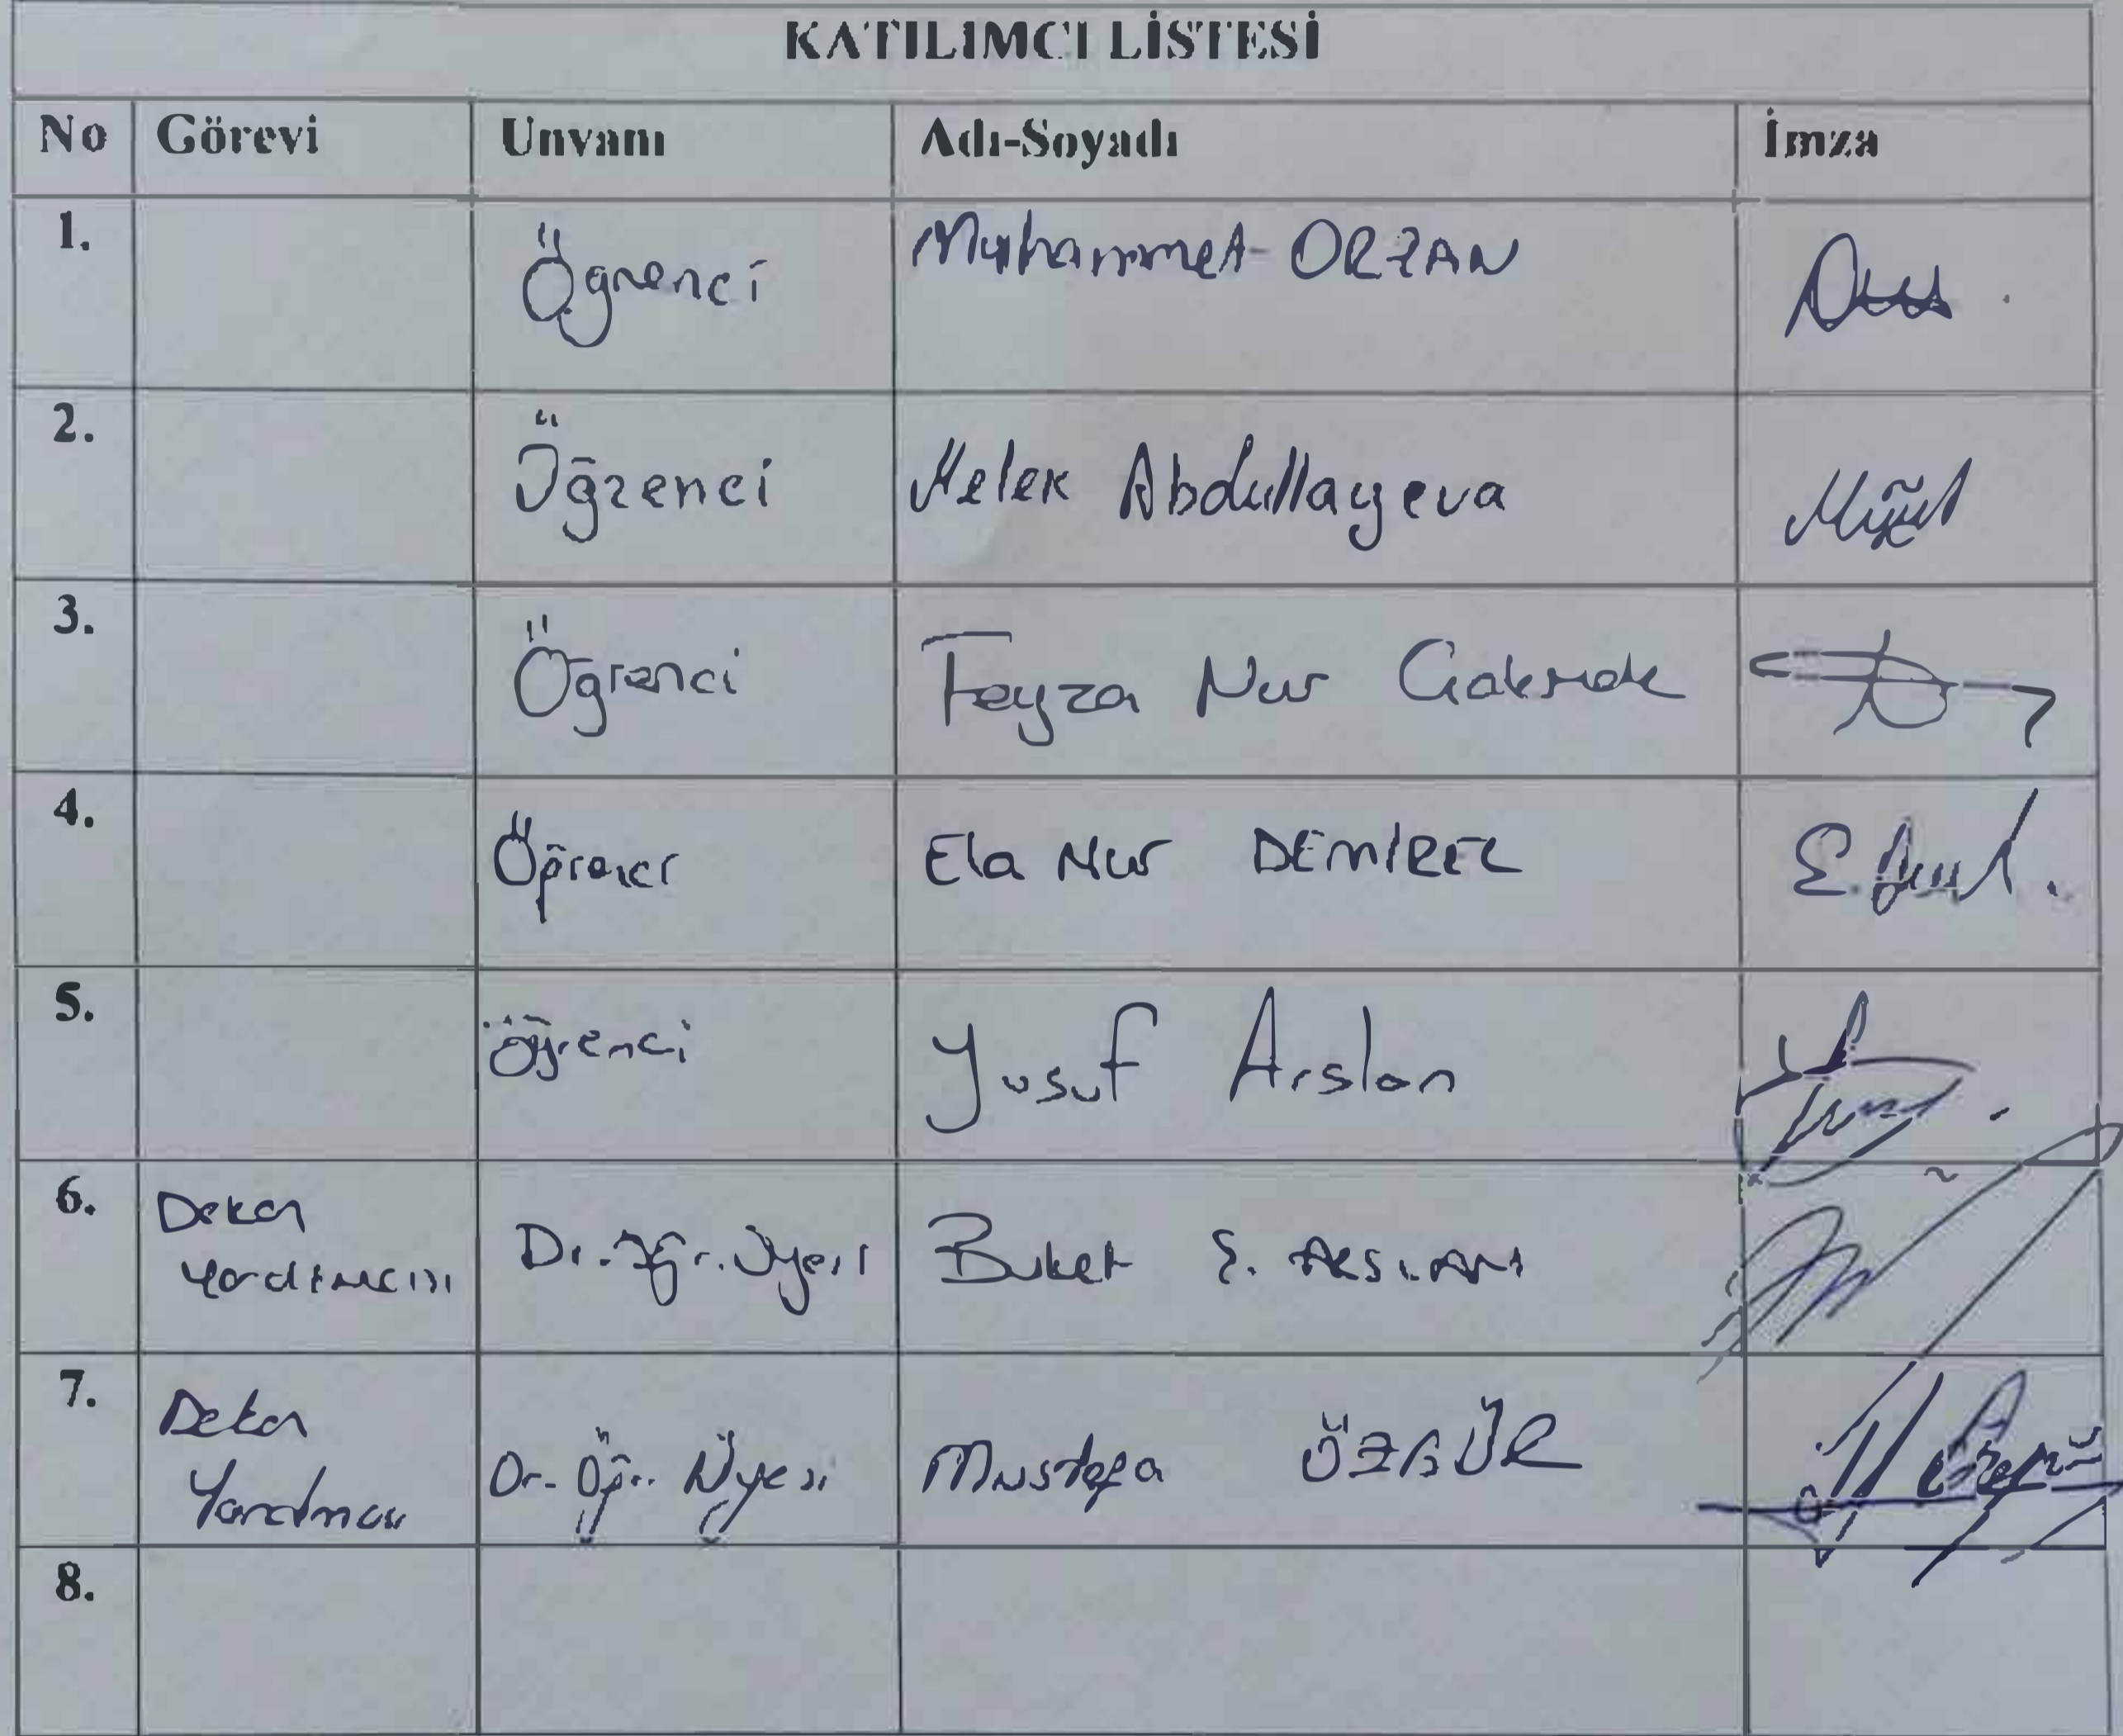 KATILIMCI LİSTESİ
No Görevi Unvanı Adı-Soyadı İmza
1. Öğrenci Muhammet ORZAN
2. Öğrenci Melek Abdullayeva
3. Öğrenci Feyza Nur
4. Öğrenci Ela Nur DEMİREL
5. Öğrenci Yusuf Arslan
6. Dekan
Yardımcısı Dr. Öğr. Üyesi Buket S. ARSLAN
7. Dekan
Yardımcısı Dr. Öğr. Üyesi Mustafa ÖZGÜR
8.